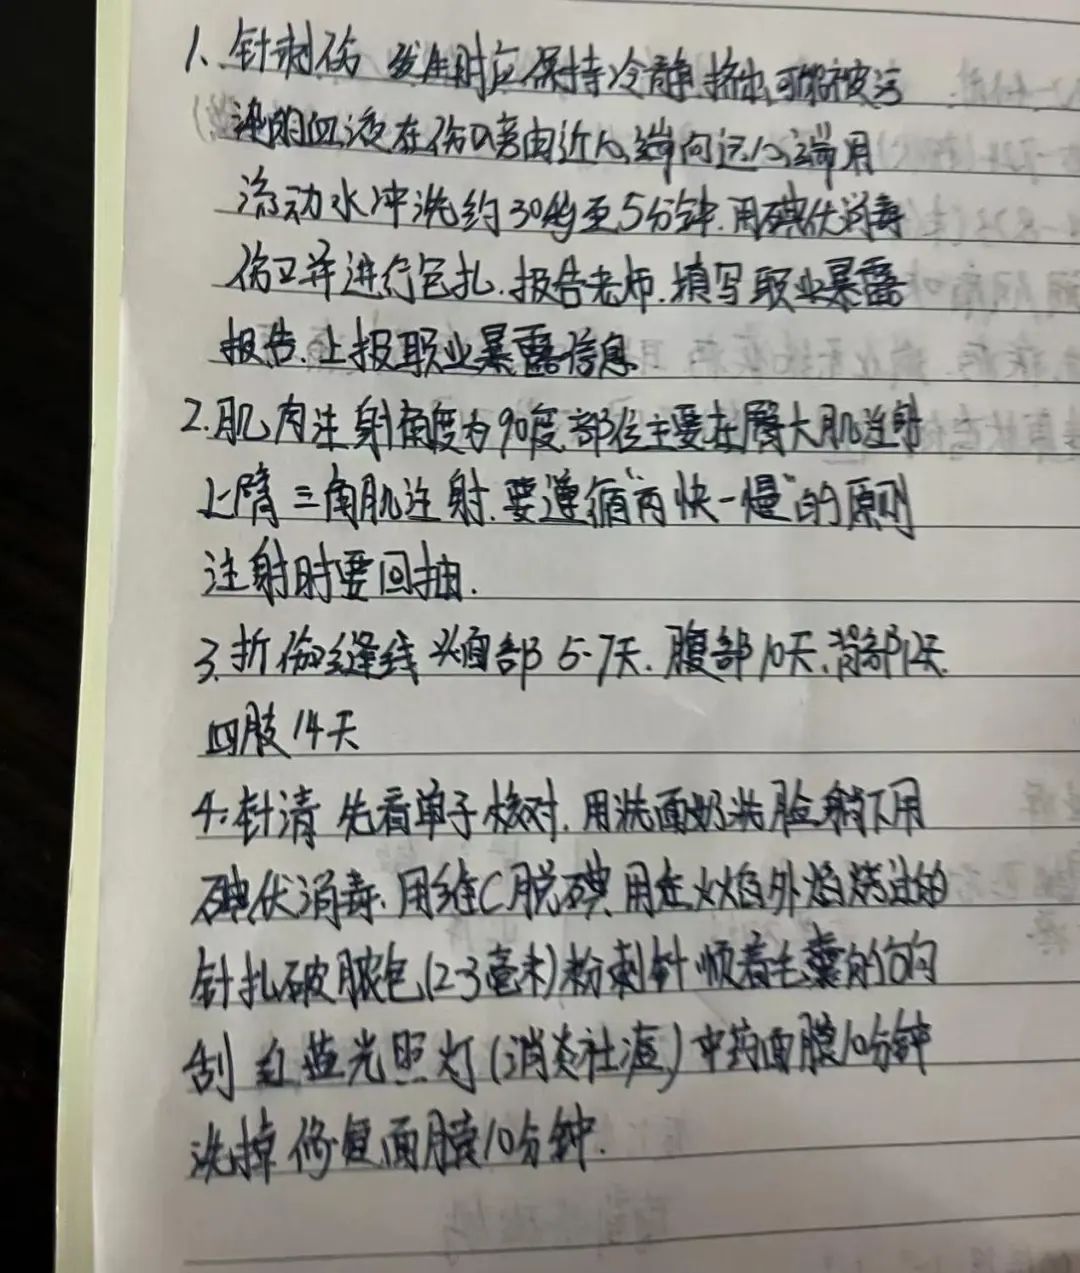 1、针刺伤 发生时应保持冷静,挤出可能被污
染的血液在伤口旁由近心端向远心端用
流动水冲洗约30秒至5分钟.用碘伏消毒
伤口并进行包扎.报告老师.填写职业暴露
报告.上报职业暴露信息
2.肌肉注射角度为90度部位主要在臀大肌注射
上臂三角肌注射.要遵循"两快一慢"的原则
注射时要回抽.
3.折伤口缝线 头面部5-7天.腹部10天.背部12天
四肢14天
4.针清 先看单子核对.用洗面奶洗脸躺下用
碘伏消毒.用维C脱碘 用在火焰外焰烤过的
针扎破脓包(2-3毫米)粉刺针顺着毛囊的方向
刮 红蓝光照灯(消炎祛痘)中药面膜10分钟
洗掉 修复面膜10分钟.